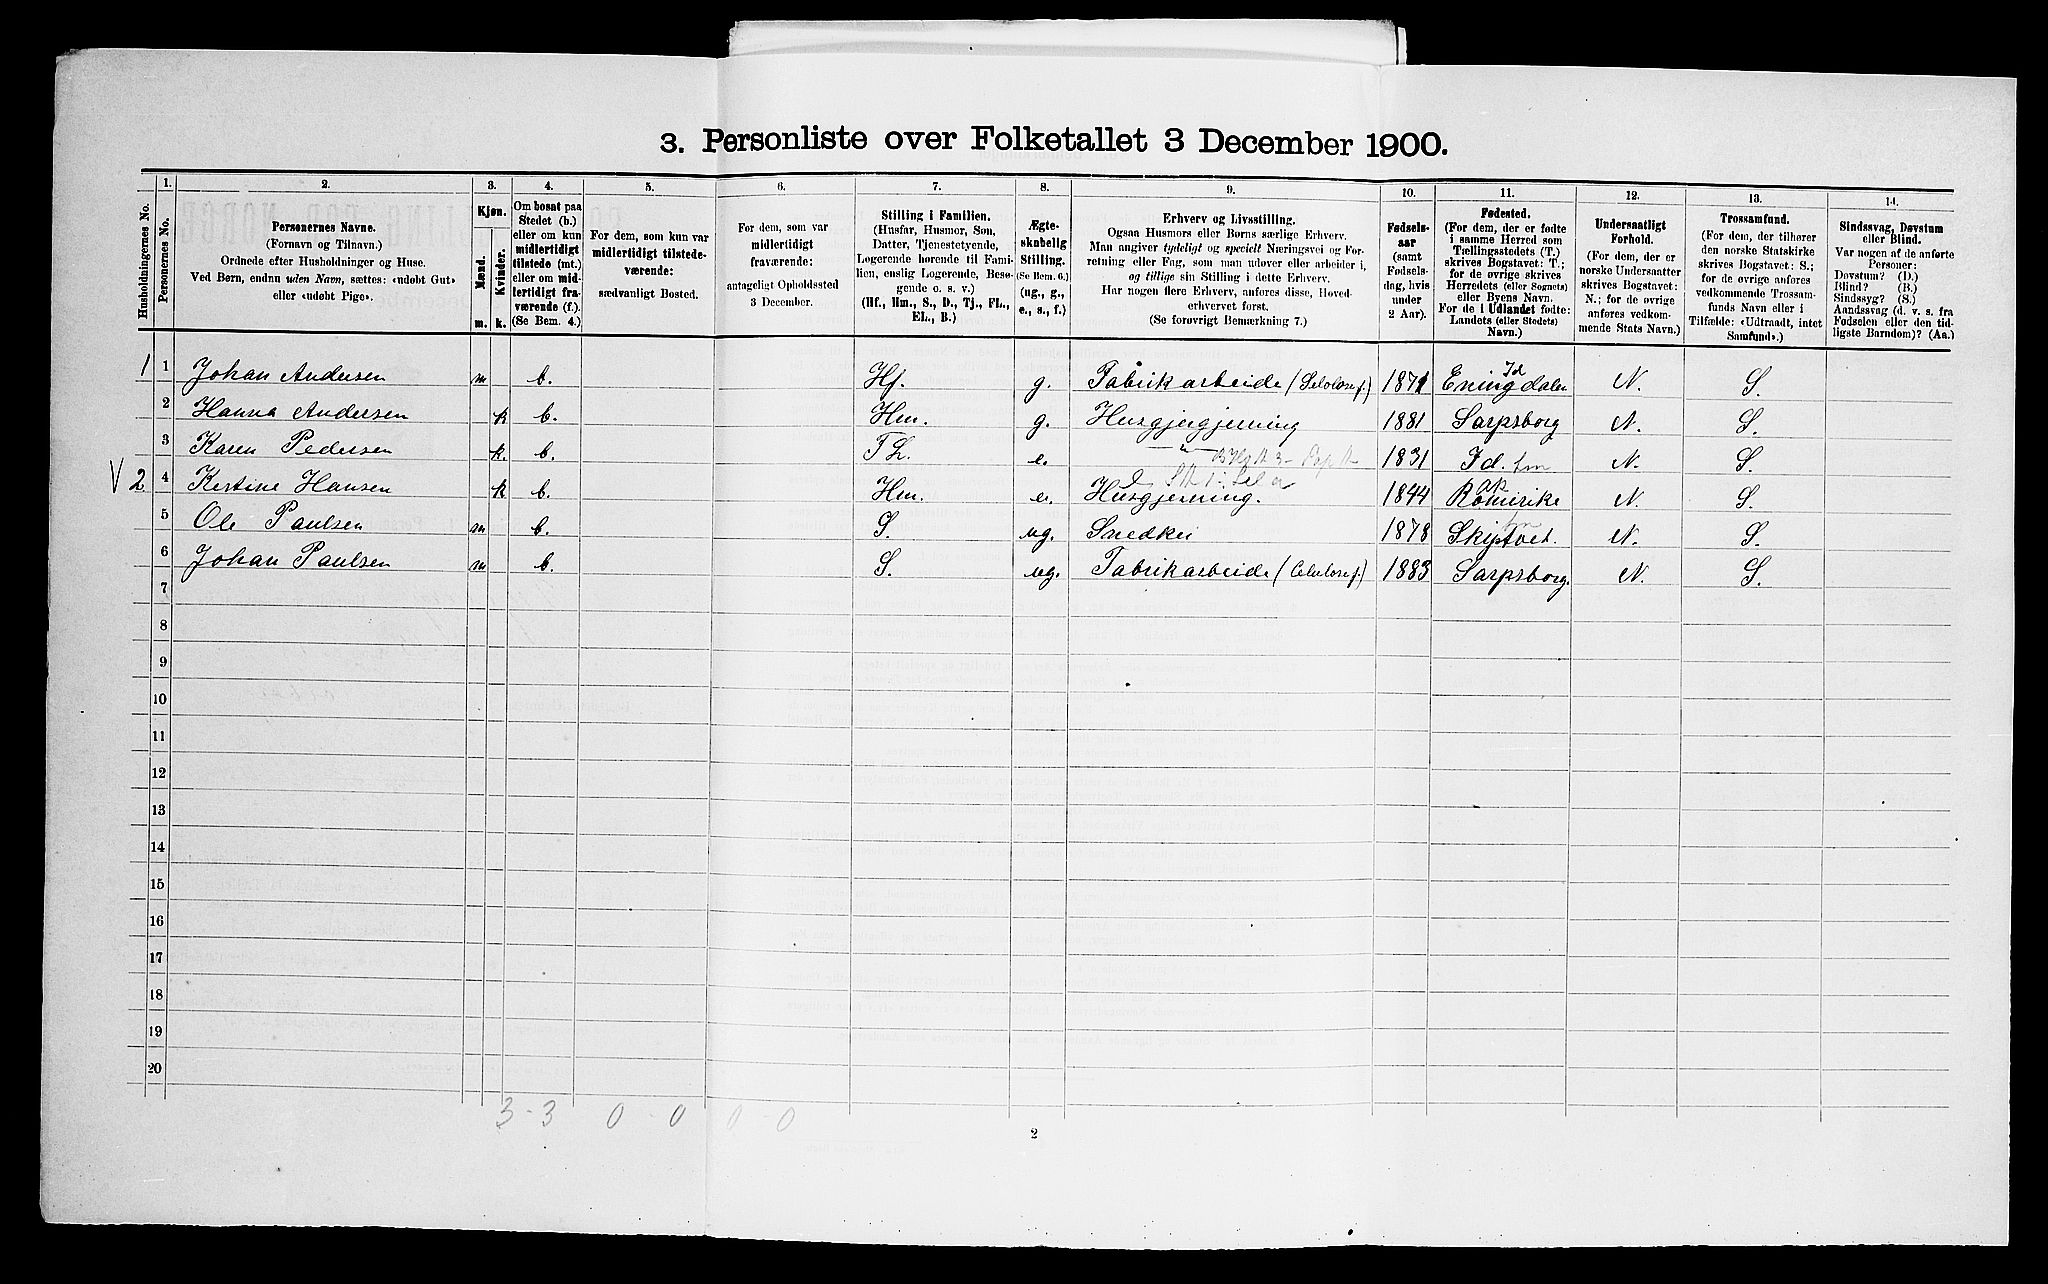 3. Personliste over Folketallet 3 December 1900.
Husholdningernes No.
1.
Personernes No.
2.
Personernes Navne.
(Fornavn og Tilnavn.)
Ordnede efter Husholdninger og Huse.
Ved Børn, endnu uden Navn, sættes: «udøbt Gut»
eller «udøbt Pige».
3.
Kjøn.
Mænd.
Kvinder.
m. k.
4.
Om bosat paa
Stedet (b.)
eller om kun
midlertidigt
tilstede (mt.)
eller om mid-
lertidigt fra-
værende (f.)
(Se Bem. 4.)
5.
For dem, som kun var
midlertidigt tilstede-
værende:
sædvanligt Bosted.
6.
For dem, som var
midlertidigt
fraværende:
antageligt Opholdssted
3 December.
7.
Stilling i Familien.
(Husfar, Husmor, Søn,
Datter, Tjenestetyende,
Logerende hørende til Fami-
lien, enslig Logerende, Besø-
gende o. s. v.)
(Hf., Hm., S., D., Tj., FL.,
EL., B.)
8.
Ægte-
skabelig
Stilling.
(Se Bem. 6.)
(ug., g.,
e., s., f.)
9.
Erhverv og Livsstilling.
Ogsaa Husmors eller Børns særlige Erhverv.
Man angiver tydeligt og specielt Næringsvei og For-
retning eller Fag, som man udøver eller arbeider i,
og tillige sin Stilling i dette Erhverv.
Har nogen flere Erhverv, anføres disse, Hoved-
erhvervet først.
(Se forøvrigt Bemærkning 7.)
10.
Fødsels-
aar
(samt
Fødsels-
dag, hvis
under
2 Aar).
11.
Fødested.
(For dem, der er fødte
i samme Herred som
Tællingsstedets (T.)
skrives Bogstavet: T.;
for de øvrige skrives
Herredets (eller Sognets)
eller Byens Navn.
For de i Udlandet fødte:
Landets (eller Stedets)
Navn.)
12.
Undersaatligt
Forhold.
(For dem, der er
norske Undersaatter
skrives Bogstavet:
N.; for de øvrige
anføres vedkom-
mende Stats Navn.)
13.
Trossamfund.
(For dem, der tilhører
den norske Statskirke
skrives Bogstavet: S.;
for de øvrige anføres
vedkommende Trossam-
funds Navn eller i
Tilfælde: «Udtraadt, intet
Samfund».)
14.
Sindssvag, Døvstum
eller Blind.
Var nogen af de anførte
Personer:
Døvstum? (D.)
Blind? (B.)
Sindssyg? (S.)
Aandssvag (d. v. s. fra
Fødselen eller den tid-
ligste Barndom)? (Aa.)
1 1 Johan Andersen m b. Hf. g. Fabrikarbeide (Selolosef.) 1871 Eningdalen Id N. S.
2 Hanna Andersen k b. Hm. g. Husgjergjerning 1881 Sarpsborg N. S.
3 Karen Pedersen k. b. FL. e. — " — 1831 Id. N. S.
V 2 4 Kirstine Hansen k b. Hm. e. Husgjerning. 1844 Romirike Ak N. S.
5 Ole Paulsen m b. S. ug. Snedker 1878 Skiptvet. N. S.
6 Johan Paulsen m b. S. ug. Fabrikarbeide (Celulosef.) 1883 Sarpsborg. N. S.
7
8
9
10
11
12
13
14
15
16
17
18
19
20
3 - 3 0 - 0 0 - 0
2